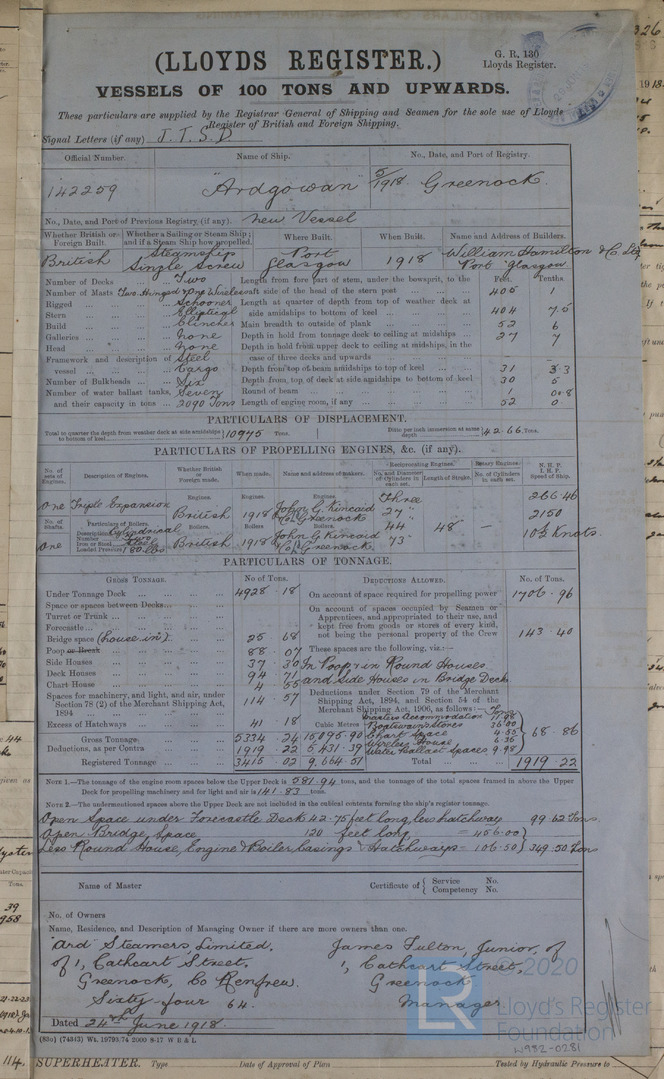 (LLOYDS REGISTER.)
G. R. 130
Lloyds Register.
VESSELS OF 100 TONS AND UPWARDS.
These particulars are supplied by the Registrar General of Shipping and Seamen for the sole use of Lloyds
Register of British and Foreign Shipping.
Signal Letters (if any) J. T. S. D.
Official Number. Name of Ship. No., Date, and Port of Registry.
142259 "Ardgowan" 5/1918 Greenock
No., Date, and Port of Previous Registry (if any). New Vessel
Whether British or Foreign Built. Whether a Sailing or Steam Ship; and if a Steam Ship how propelled. Where Built. When Built. Name and Address of Builders.
British Steamship Single Screw Port Glasgow 1918 William Hamilton & Co Ltd Port Glasgow
Number of Decks Two Length from fore part of stem, under the bowsprit, to the Feet. Tenths.
Number of Masts Two Hinged & One Wireless aft side of the head of the stern post 405 1
Rigged Schooner Length at quarter of depth from top of weather deck at
Stern Elliptical side amidships to bottom of keel 404 7.5
Build Clincher Main breadth to outside of plank 52 6
Galleries None Depth in hold from tonnage deck to ceiling at midships 27 7
Head None Depth in hold from upper deck to ceiling at midships, in the
Framework and description of Steel case of three decks and upwards
vessel Cargo Depth from top of beam amidships to top of keel 31 3.3
Number of Bulkheads Six Depth from top of deck at side amidships to bottom of keel 30 5
Number of water ballast tanks, Seven Round of beam 1 0.8
and their capacity in tons 2090 Tons Length of engine room, if any 52 0
PARTICULARS OF DISPLACEMENT.
Total to quarter the depth from weather deck at side amidships to bottom of keel 10975 Tons. Ditto per inch immersion at same depth 42.66 Tons.
PARTICULARS OF PROPELLING ENGINES, &c. (if any).
No. of sets of Engines. Description of Engines. Whether British or Foreign made. When made. Name and address of makers. Reciprocating Engines. Rotary Engines. N. H. P.
No. and Diameter of Cylinders in each set. Length of Stroke. No. of Cylinders in each set. I. H. P. Speed of Ship.
Engines. Engines. Engines Three 266 46
One Triple Expansion British 1918 John G. Kincaid & Co. Greenock 27" 2150
Particulars of Boilers. Boilers Boilers Boilers 44 48" —
Description Cylindrical
Number Two
Iron or Steel Steel John G. Kincaid
One Loaded Pressure 180 lbs British 1918 & Co. Greenock 73" 10½ Knots.
PARTICULARS OF TONNAGE.
GROSS TONNAGE. No of Tons. DEDUCTIONS ALLOWED. No. of Tons.
Under Tonnage Deck 4928.18 On account of space required for propelling power 1706.96
Space or spaces between Decks On account of spaces occupied by Seamen or
Turret or Trunk Apprentices, and appropriated to their use, and
Forecastle kept free from goods or stores of every kind,
Bridge space (house in) 25 68 not being the personal property of the Crew 143.40
Poop or Break 88.07 These spaces are the following, viz.:—
Side Houses 37 30 In Poop & in Round Houses
Deck Houses 94 71 and Side Houses in Bridge Deck
Chart House 4 55 Deductions under Section 79 of the Merchant
Spaces for machinery, and light, and air, under 114 57 Shipping Act, 1894, and Section 54 of the
Section 78 (2) of the Merchant Shipping Act, Merchant Shipping Act, 1906, as follows:— Tons
1894 Masters Accommodation 11.98
Excess of Hatchways 41 18 Cubic Metres Boatswain's Stores 36.00
Gross Tonnage 5334 24 15,095.90 Chart Space 4.55 68.86
Deductions, as per Contra 1919 22 5,431.39 Wireless House 6.35
Water Ballast Spaces 9.98
Registered Tonnage 3415 02 9,664.51 Total 1919.22
NOTE 1.—The tonnage of the engine room spaces below the Upper Deck is 581.94 tons, and the tonnage of the total spaces framed in above the Upper
Deck for propelling machinery and for light and air is 141.83 tons.
NOTE 2.—The undermentioned spaces above the Upper Deck are not included in the cubical contents forming the ship's register tonnage.
Open Space under Forecastle Deck 42.75 feet long, less hatchway 99.62 Tons.
Open Bridge Space 120 feet long = 456.00
Less Round House, Engine & Boiler Casings & Hatchways = 106.50 349.50 Tons
Name of Master Certificate of Service No.
Competency No.
No. of Owners
Name, Residence, and Description of Managing Owner if there are more owners than one.
"Ard" Steamers, Limited, James Fulton, Junior, of
of 1, Cathcart Street, 1, Cathcart Street,
Greenock, Co Renfrew. Greenock
Sixty four 64. Manager
Dated 24th June 1918.
(83a) (74343) Wt. 19793.74 2000 8-17 W B & L
SUPERHEATER. Type Date of Approval of Plan Tested by Hydraulic Pressure to
LR
© 2020
Lloyd's Register
Foundation
W982-0281